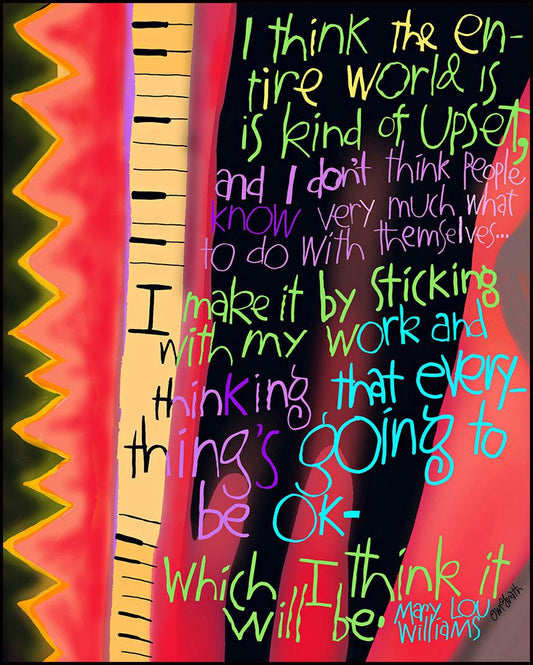 I think the en-
tire world is
is kind of upset,
and I don't think people
know very much what
to do with themselves...
I make it by sticking
with my work and
thinking that every-
thing's going to
be OK-
Which I think it
will be.
Mary Lou
Williams